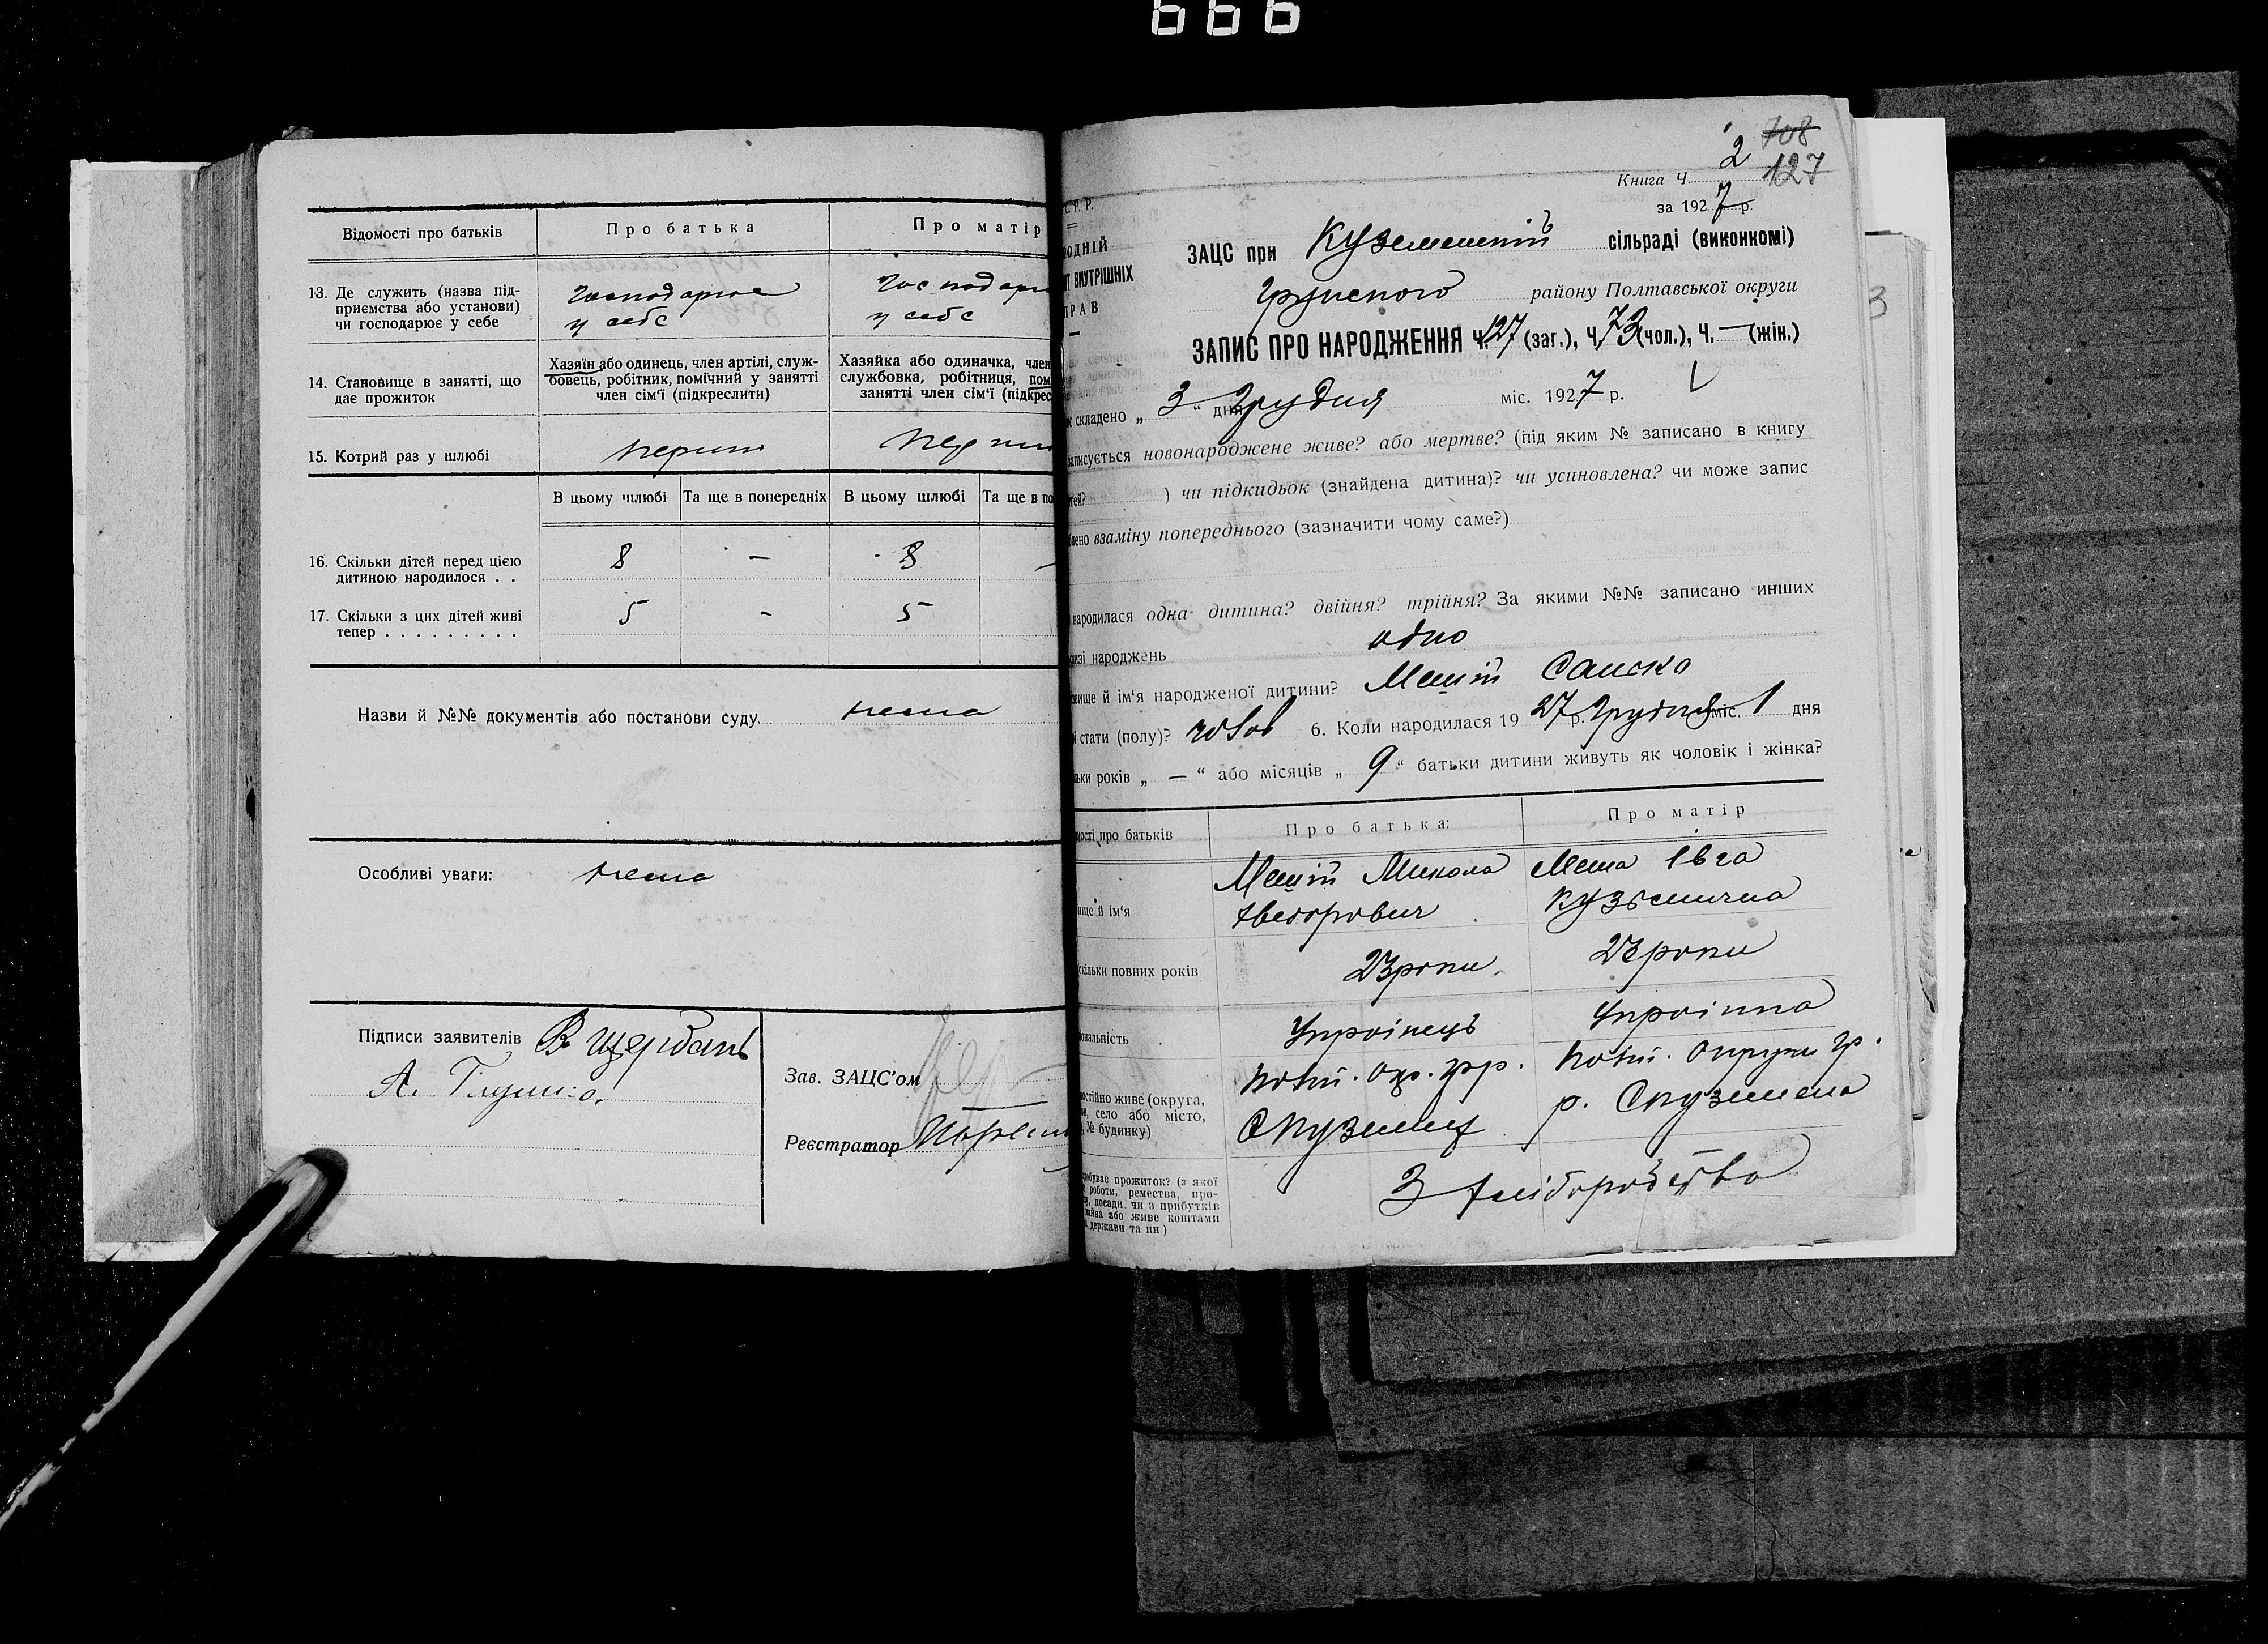 666
Відомості про батьків
Про батька
Про матір
13. Де служить (назва під-
приємства або установи)
чи господарює у себе
господарює
у себе
господарю
у себе
14. Становище в занятті, що
дає прожиток
Хазяїн або одинець, член артілі, служ-
бовець, робітник, помічний у занятті
член сім'ї (підкреслити)
Хазяйка або одиначка, член
службовка, робітниця, пом
занятті член сім'ї (підкрес
15. Котрий раз у шлюбі
перший
перший
В цьому шлюбі
Та ще в попередніх
В цьому шлюбі
Та ще в по
16. Скільки дітей перед цією
дитиною народилося . .
8
–
8
–
17. Скільки з цих дітей живі
тепер . . . . . . . . .
5
-
5
Назви й №№ документів або постанови суду
нема
Особливі уваги:
нема
Підписи заявителів В. Щербань
А. Глушко.
Зав. ЗАЦС'ом
Реєстратор
708
2
127
Книга Ч.
за 1927 р.
С. Р. Р.
РОДНІЙ
ІТ ВНУТРІШНІХ
ПРАВ
ЗАЦС при Куземенській сільраді (виконкомі)
Грунського району Полтавської округи
ЗАПИС ПРО НАРОДЖЕННЯ Ч. 127 (заг.), Ч. 73 (чол.), Ч. — (жін.)
складено „ 3 “ дня Грудня міс. 1927 р.
записується новонароджене живе? або мертве? (під яким № записано в книгу
тей? ) чи підкидьок (знайдена дитина)? чи усиновлена? чи може запис
блено взаміну попереднього (зазначити чому саме?)
народилася одна дитина? двійня? трійня? За якими №№ записано инших
низі народжень
одно
звище й ім'я народженої дитини? Меший Сашко
ї стати (полу)? чолов 6. Коли народилася 1927 р. Грудня міс. 1 дня
льки років „ — “ або місяців „ 9 “ батьки дитини живуть як чоловік і жінка?
мості про батьків
Про батька:
Про матір
вище й ім'я
Меший Микола
Хведорович
Меша Івга
Кузьмична
скільки повних років
23 роки
23 роки
іональність
Українець
Українка
постійно живе (округа,
н, село або місто,
№ будинку)
Полт. Окр. Гр р.
С Куземен
Полт. Округи Гр.
р. С Куземена
добуває прожиток? (з якої
роботи, ремества, про-
у, посади, чи з прибутків
майна або живе коштами
, держави та ин)
З хліборобства
3